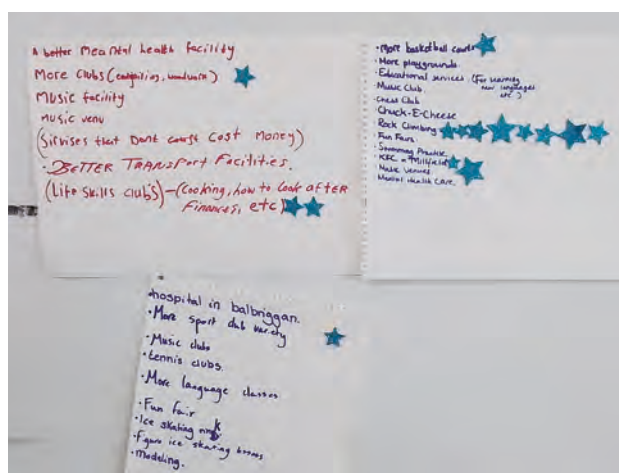 A better Meantal health facility
More Clubs (
Music facility
music venu
(Sirvises that Dont coust Cost Money)
· BETTER TRANSPORT Facilities.
(Life Skills Club's) - (Cooking, how to look after
Finances, etc)
· More basketball courts
· More playgrounds
· Educational services (For learning
new languages
etc.)
· Music Club
· Chess Club
· Chuck-E-Cheese
· Rock Climbing
· Fun Fairs
· Swimming Practise
· KFC in Millfield
· Music Venues
· Mental Health Care.
· hospital in balbriggan.
· More sport club variety
· Music clubs
· tennis clubs.
· More language classes
· Fun fair
· Ice skating rink
· figure ice skating
· modeling.